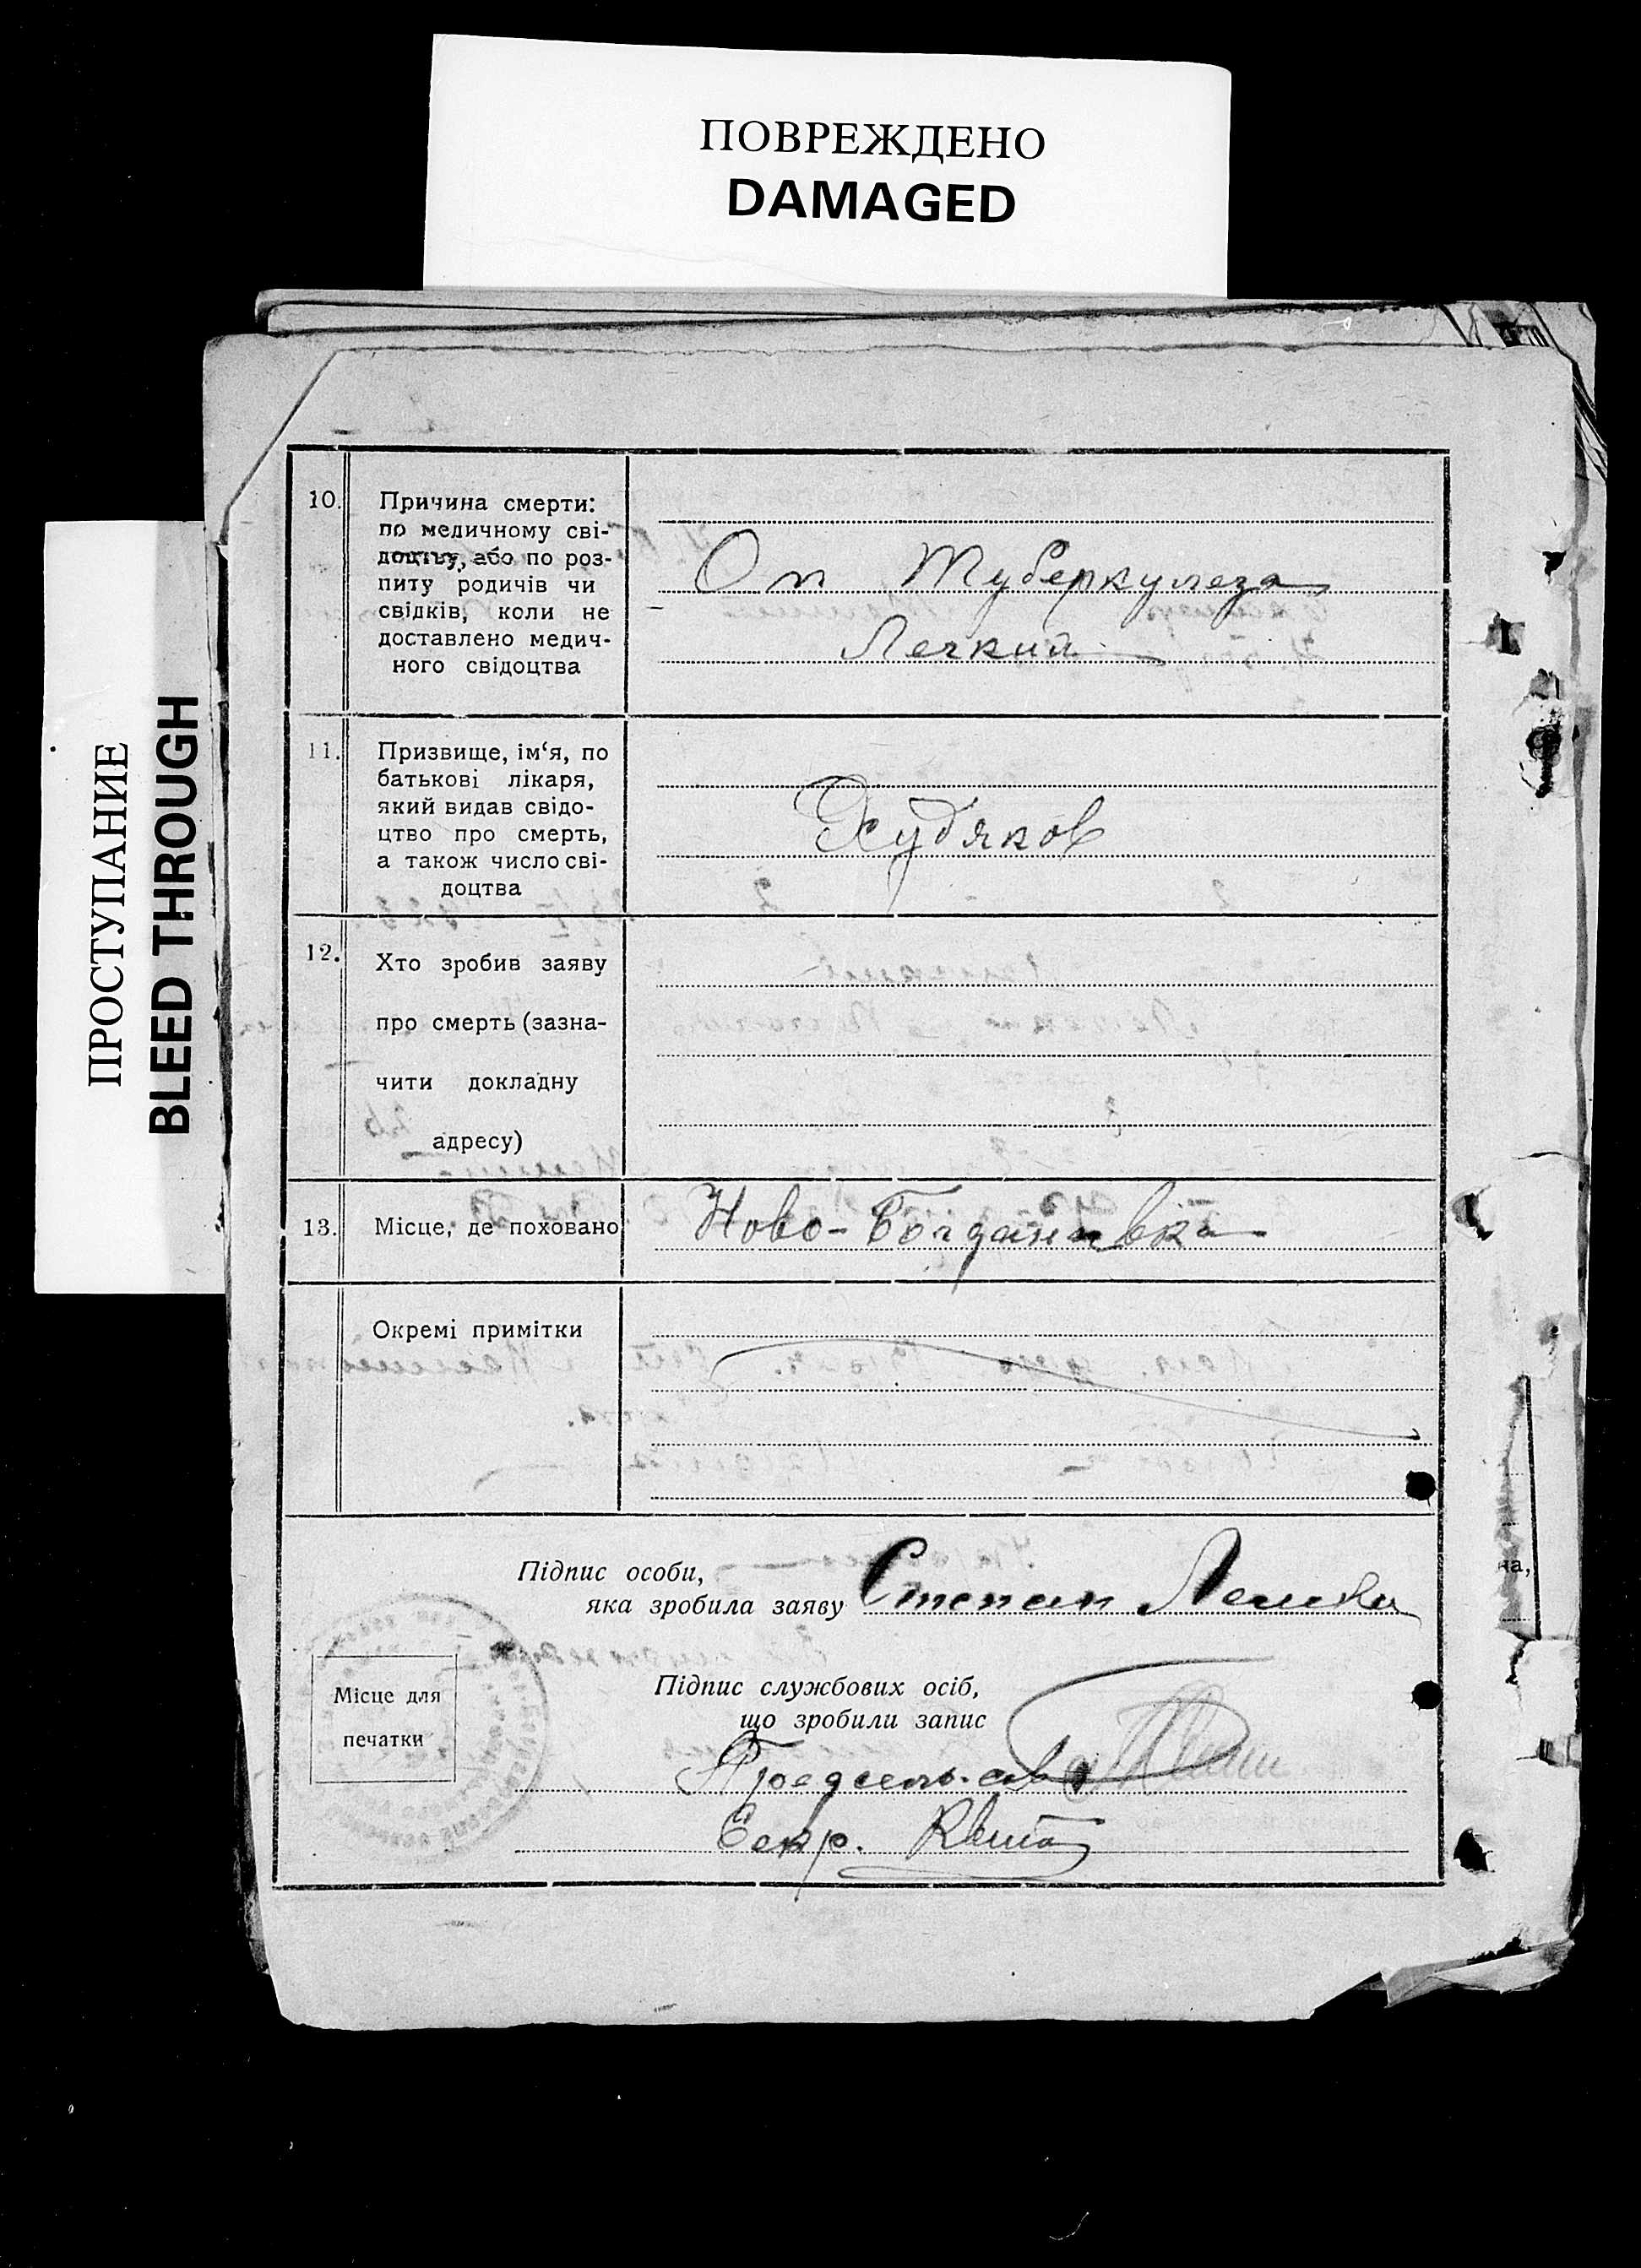 ПОВРЕЖДЕНО
DAMAGED
ПРОСТУПАНИЕ
BLEED THROUGH
10. Причина смерти:
по медичному сві-
доцтву, або по роз-
питу родичів чи
свідків, коли не
доставлено медич-
ного свідоцтва
От туберкулеза
Легких
11. Призвище, ім‘я, по
батькові лікаря,
який видав свідо-
цтво про смерть,
а також число сві-
доцтва
Худяков
12. Хто зробив заяву
про смерть (зазна-
чити докладну
адресу)
13. Місце, де поховано
Ново-Богдановка
Окремі примітки
Підпис особи,
яка зробила заяву
Степан
Місце для
печатки
Підпис службових осіб,
що зробили запис
Предсель.
Секр.
на,